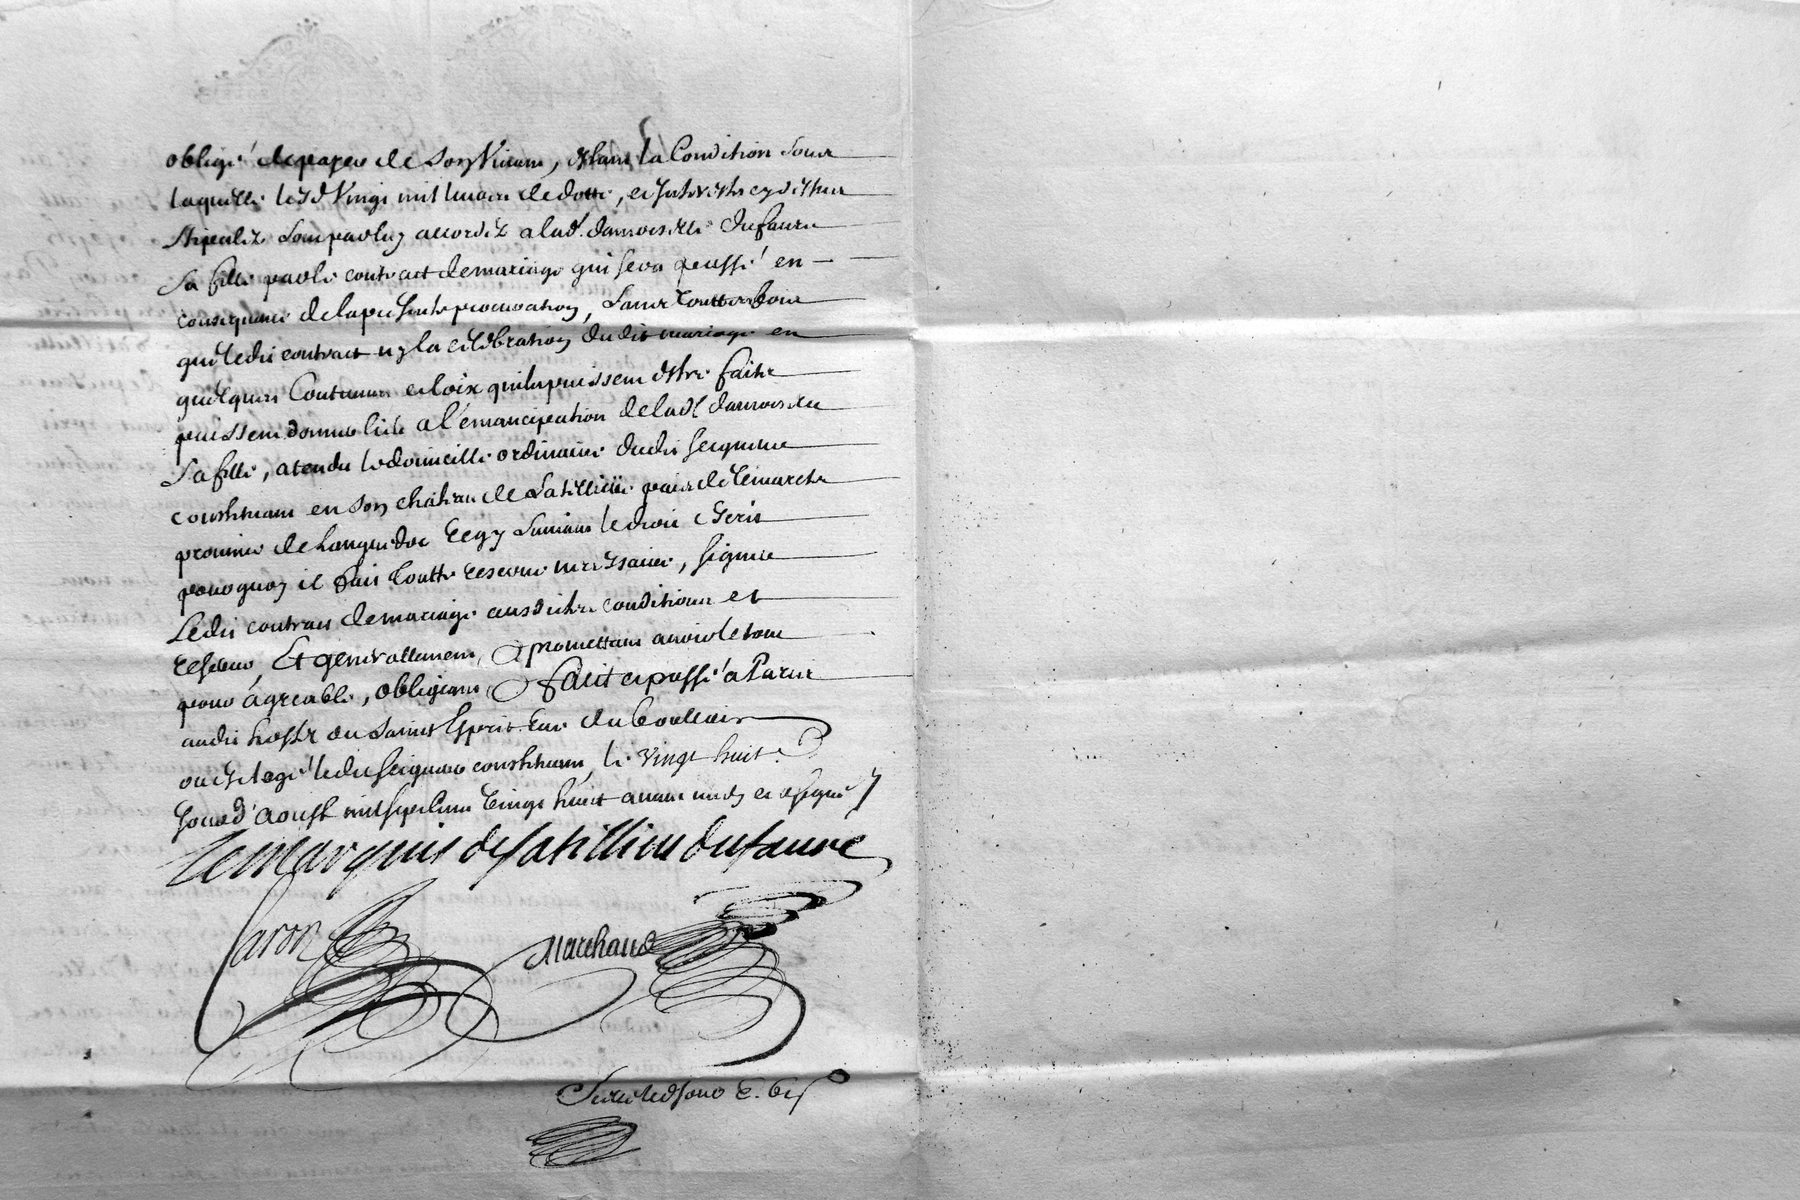 obligé de payer de son vivant, estant la Condition sous
laquelle lesd. Vingt mil livres de dotte, et
stipulez sont par luy accordez a lad. damoiselle Dufaure
sa fille par le contract de mariage qui sera passé en
consequance de la presente procuration, sans touttesfois
que ledit contract ny la celebration dudit mariage en
quelques Coutumes et loix quils puissent estre faits
puissent donner lieu a l'emancipation de lad. damoiselle
sa fille, atendu le domicille ordinaire dudit seigneur
constituant en son chateau de Satillieu païs de
province de Languedoc regy suivant le droit Escrit
pourquoy il fait toutte reserve necessaire, signer
Ledit contract de mariage ausdites conditions et
reserve, Et generallement, promettant avoir le tout
pour agreable, obligeant, fait et passé a Paris
audit hostel du Saint Esprit rue du Bouloir
ou est logé ledit seigneur constituant, le vingt huit.e
jour d'aoust mil sept cent vingt huit avant midy et a signé
Le Marquis de Satillieu dufaure
Caron Marchand
Scellé led. jour